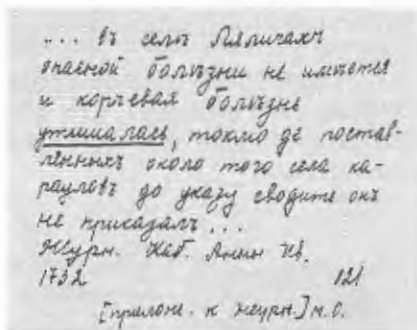 ... въ селѣ Ляличахъ
опасной болѣзни не имѣется
и корчевая болѣзнь
утишалась, токмо де постав-
ленныхъ около того села ка-
рауловъ до указу сводить онъ
не приказалъ...
Журн. Каб. Анны Ив.
1732 121
[прилож. к журн.] н. о.